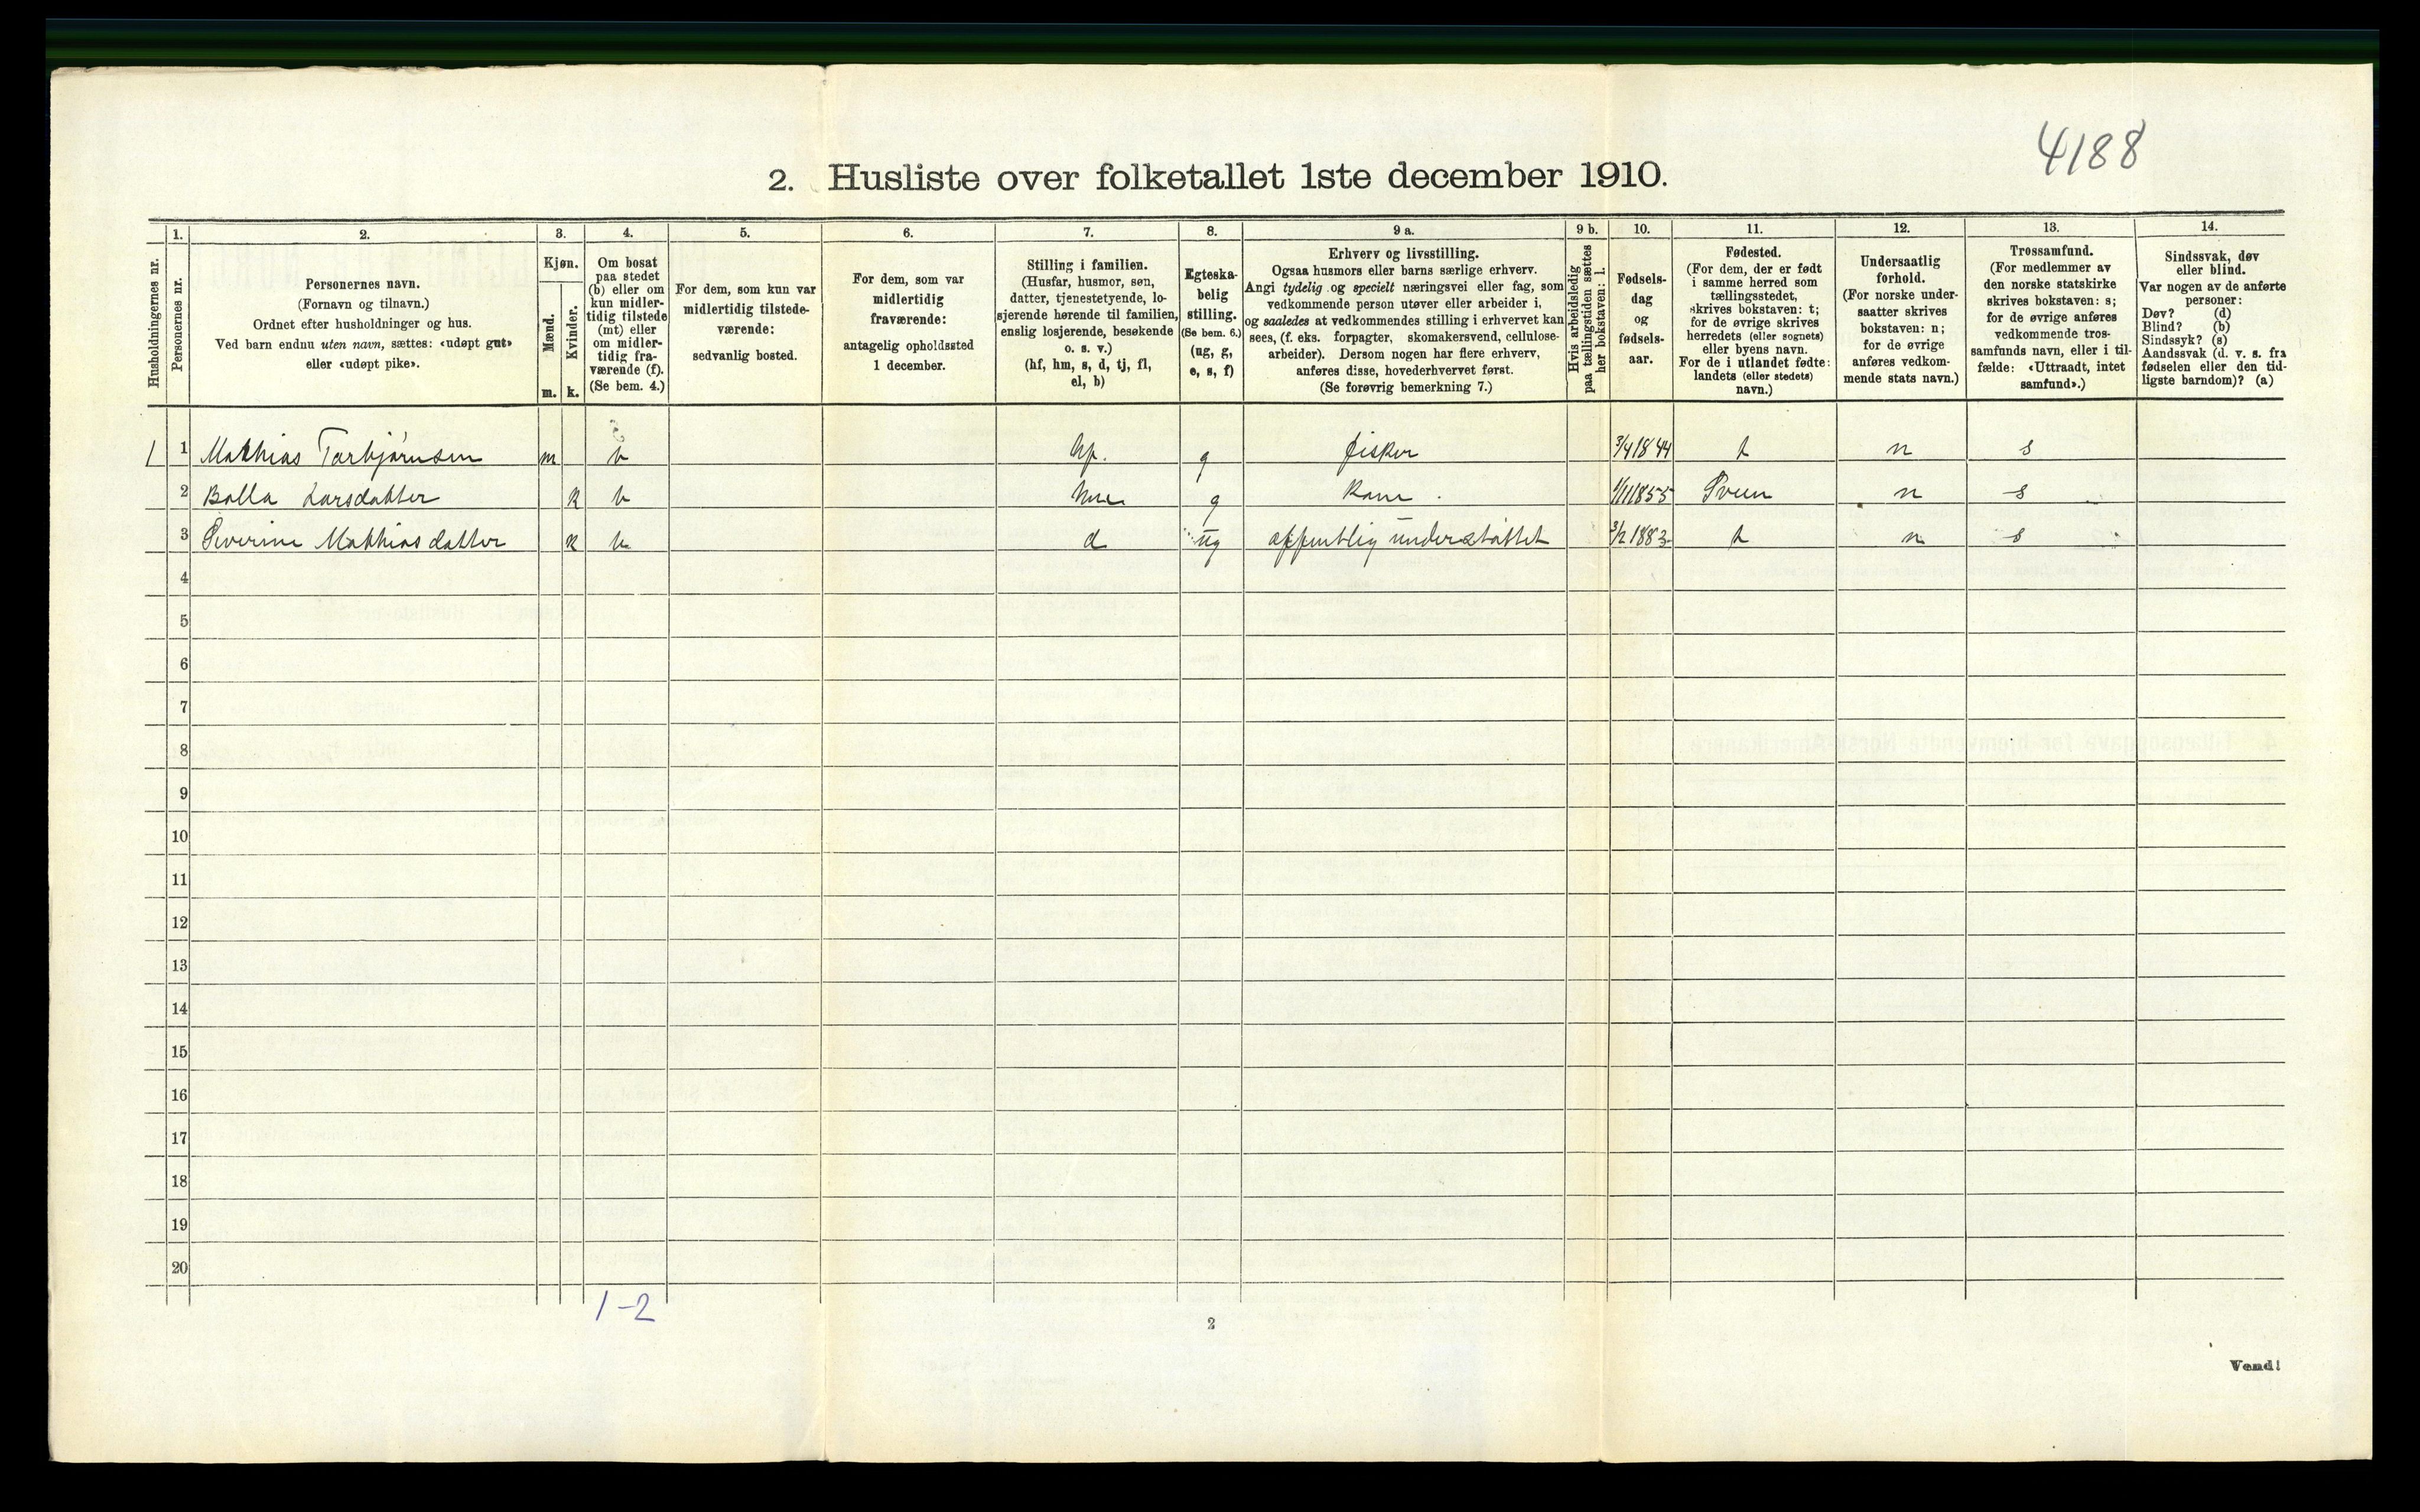 4188
2. Husliste over folketallet 1ste december 1910.
Husholdningernes nr.
1.
Personernes nr.
2.
Personernes navn.
(Fornavn og tilnavn.)
Ordnet efter husholdninger og hus.
Ved barn endnu uten navn, sættes: «udøpt gut»
eller «udøpt pike».
3.
Kjøn.
Mænd.
m.
Kvinder.
k.
4.
Om bosat
paa stedet
(b) eller om
kun midler-
tidig tilstede
(mt) eller
om midler-
tidig fra-
værende (f).
(Se bem. 4.)
5.
For dem, som kun var
midlertidig tilstede-
værende:
sedvanlig bosted.
6.
For dem, som var
midlertidig
fraværende:
antagelig opholdssted
1 december.
7.
Stilling i familien.
(Husfar, husmor, søn,
datter, tjenestetyende, lo-
sjerende hørende til familien,
enslig losjerende, besøkende
o. s. v.)
(hf, hm, s, d, tj, fl,
el, b)
8.
Egteska-
belig
stilling.
(Se bem. 6.)
(ug, g,
e, s, f)
9 a.
Erhverv og livsstilling.
Ogsaa husmors eller barns særlige erhverv.
Angi tydelig og specielt næringsvei eller fag, som
vedkommende person utøver eller arbeider i,
og saaledes at vedkommendes stilling i erhvervet kan
sees, (f. eks. forpagter, skomakersvend, cellulose-
arbeider). Dersom nogen har flere erhverv,
anføres disse, hovederhvervet først.
(Se forøvrig bemerkning 7.)
9 b.
Hvis arbeidsledig
paa tællingstiden sættes
her bokstaven: l.
10.
Fødsels-
dag
og
fødsels-
aar.
11.
Fødested.
(For dem, der er født
i samme herred som
tællingsstedet,
skrives bokstaven: t;
for de øvrige skrives
herredets (eller sognets)
eller byens navn.
For de i utlandet fødte:
landets (eller stedets)
navn.)
12.
Undersaatlig
forhold.
(For norske under-
saatter skrives
bokstaven: n;
for de øvrige
anføres vedkom-
mende stats navn.)
13.
Trossamfund.
(For medlemmer av
den norske statskirke
skrives bokstaven: s;
for de øvrige anføres
vedkommende tros-
samfunds navn, eller i til-
fælde: «Uttraadt, intet
samfund».)
14.
Sindssvak, døv
eller blind.
Var nogen av de anførte
personer:
Døv? (d)
Blind? (b)
Sindssyk? (s)
Aandssvak (d. v. s. fra
fødselen eller den tid-
ligste barndom)? (a)
1 1 Mathias Torbjørnsen m b hf. g fisker 3/4 1844 t n s
2 Bolla Larsdatter k b hm g Kone . 1/11 1855 n s
3 Severine Mathiasdatter k b d ug offentlig understøttet 3/2 1883 t n s
4
5
6
7
8
9
10
11
12
13
14
15
16
17
18
19
20
1-2
2
Vend!